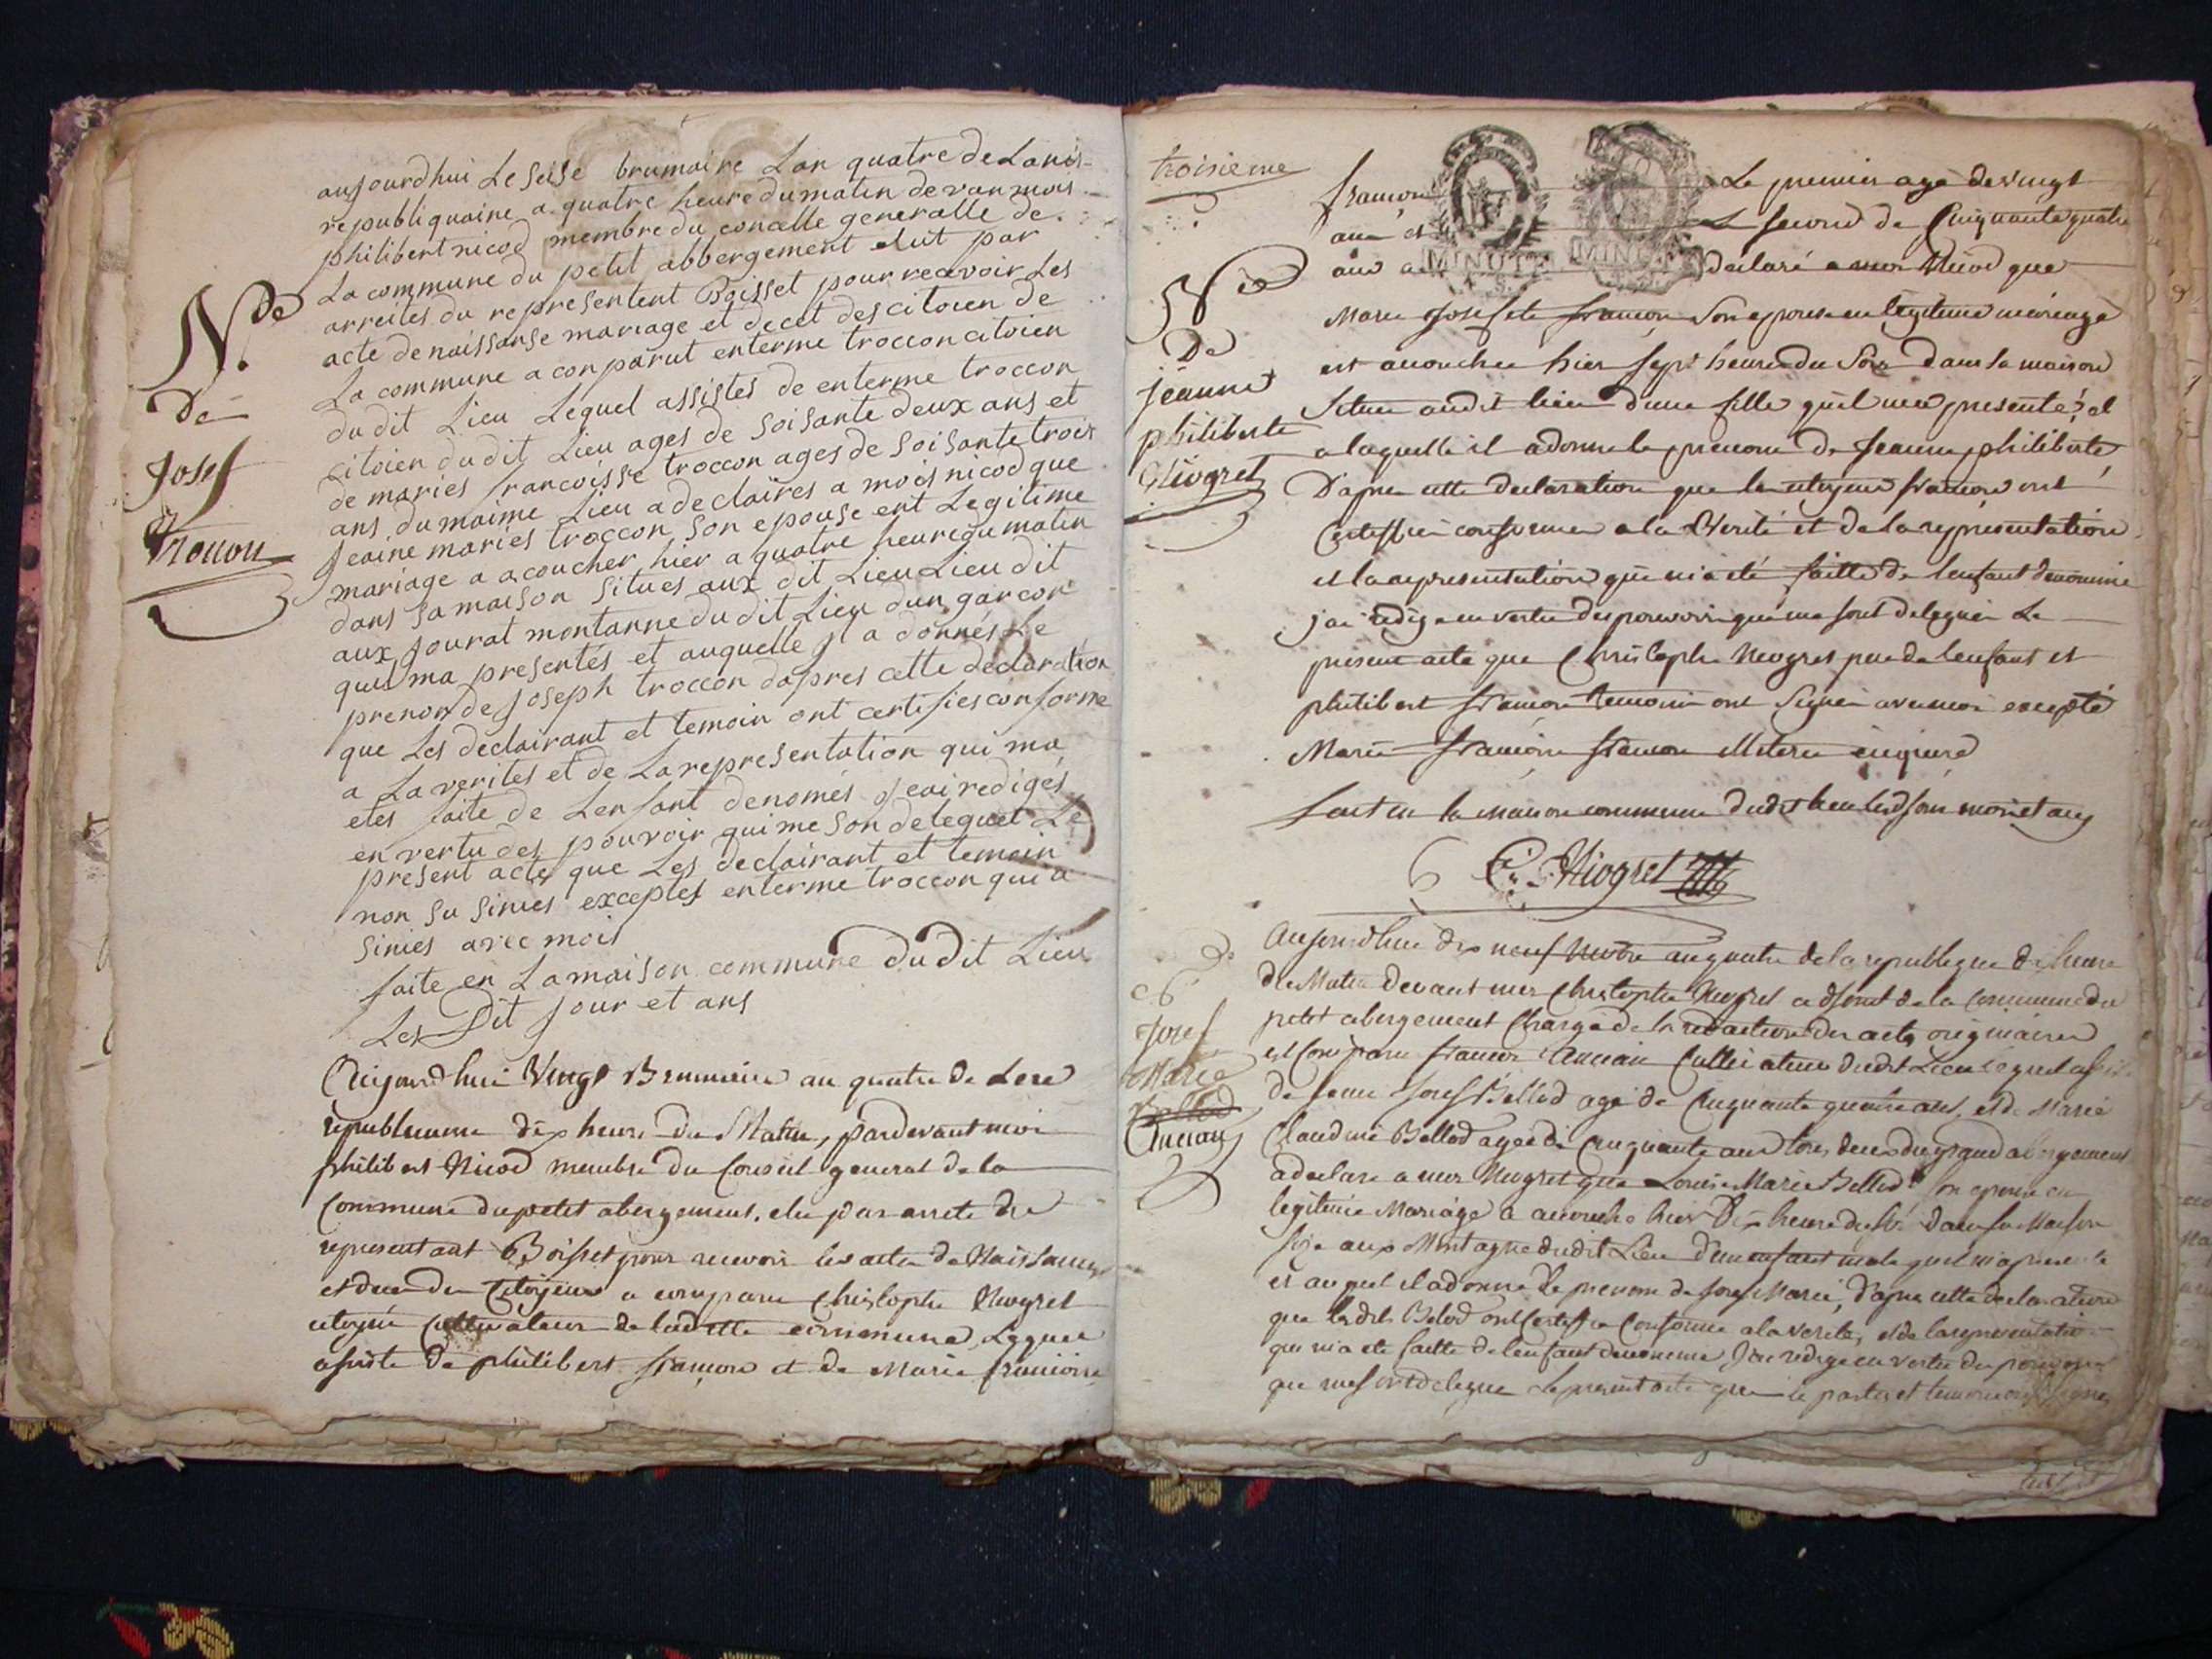 aujourdhui Le seise brumaire Lan quatre de Lanis-
republiquaine a quatre heure du matin devan mois
philibert nicod membre du conselle generalle de
La commune du petit abbergement elut par
arreites du representent Boisset pour recevoir Les
acte de naissanse mariage et decet des citoien de
La commune a conparut enterme troccon citoien
du dit Lieu Lequel assistes de enterme troccon
citoien du dit Lieu ages de soisante deux ans et
de maries francoisse troccon ages de soisante trois
ans du maime Lieu a declaires a mois nicod que
Jeaine maries troccon son epouse ent Legitime
mariage a acoucher hier a quatre heure du matin
dans sa maison situes aux dit Lieu Lieu dit
aux jourat montanne du dit Lieu dun garcon
quil ma presentés et auquelle il a donnés Le
prenon de Joseph troccon dapres cette declaration
que Les declairant et temoin ont certifies conforme
a La verites et de La representation qui ma
etes faite de Lenfant denomés Jeai rediges
en vertu des pouvoir qui me son delequet Le
present acte que Les declairant et temoin
non su sinies exceptes enterme troccon qui a
sinies avec mois
faite en La maison commune du dit Lieu
Les Dit jour et ans
N.ce
De
Josef
Trocon
Aujourdhui Vingt Brumaire an quatre de Lere
republicaine dix heure du Matin, pardevant moi
philibert Nicod membre du Conseil general de la
Commune du petit abergement. elu par arreté du
representant Boisset pour recevoir les actes de Naissances
et deces des Citoyens a comparu Christophe Niogret
citoyen Cultivateur de laditte commune, Lequel
assisté de philibert françon et de Marie françoise
troisieme
françon Le premier agé de vingt
ans et Le second de Cinquante quatre
ans a déclaré a moi Nicod que
Marie Josefete françon Son epouse en légitime mariage
est acouchée hier sept heure du Soir dans la maison
Située audit lieu d'une fille qu'il m'a presenté et
a laquelle il a donné le prenom de Jeanne philiberte
D'apres cette declaration que les citoyens françon ont
Certifié conforme a la Verité et de la representation
et la representation qui m'a eté faitte de lenfant denommé
j'ai redigé en vertu des pouvoirs qui me sont delegués Le
présent acte que Christophe Niogret pere de lenfant et
philibert françon temoin ont Signé avec moi excepté
Marie françoise françon
fait en la maison commune dudit lieu lesd jour mois et an
C. Niogret
N.ce
De
jeanne
philiberte
Niogret
Aujourdhui dix neuf Nivose an quatre de la republique dix heure
du Matin devant moi Christophe Niogret adjoint de la Commune du
petit abergement Chargé de la redaction des actes originaires
est Comparu francois Ancian Cultivateur dudit Lieu lequel assisté
de Josef Bellod agé de Cinquante quatre ans, et de Marie
Claudine Bellod agée de Cinquante ans tous deux du grand abergement
a declaré a moi Niogret que Louise Marie Bellod Son epouse en
légitime Mariage a acouché hier dix heure du soir dans sa Maison
sise aux Montagne dudit Lieu d'un enfant male quil m'a presenté
et auquel il a donné le prenom de Josef Marie, d'apres cette declaration
que lesdits Bellod ont Certifié Conforme a la verité, et de la representation
qui m'a eté faitte de lenfant denommé J'ai redigé en vertu des pouvoirs
qui me sont delegué le present acte que les parties et temoins ont signé
Josef
Marie
Bellod
Ancian